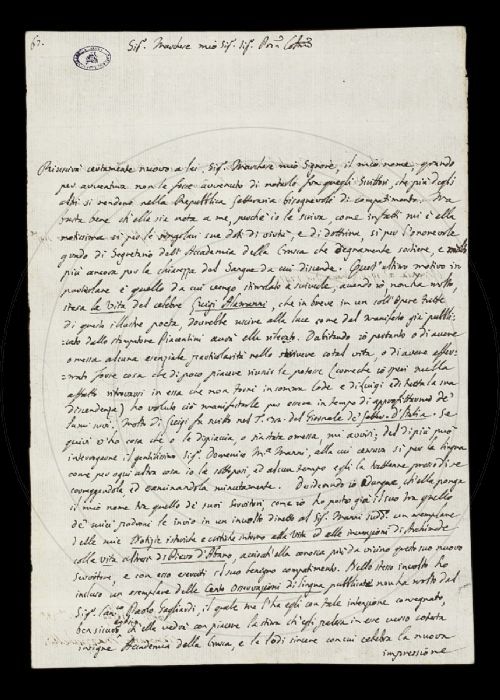 67.
Sig.r Marchese mio Sig.r Sig.r Pron
Riuscirà certamente nuovo a lei, Sig.r Marchese mio Signore, il mio nome, quando
per avventura non le fosse avvenuto di notarlo fra quegli Scrittori, che più degli
altri si rendono nella Repubblica letteraria bisognevoli di compatimento. Ma
bene ch'ella sia nota a me, perchè io le scriva, come infatti mi è ella
notissima sì per le singolari sue doti di virtù, e di dottrina sì per l'onorevole
grado di Segretario dell'Accademia della Crusca che degnamente sostiene, e molto
più ancora per la chiarezza del Sangue da cui discende. Quest'ultimo motivo in
particolare è quello da cui vengo stimolato a scriverle, avendo io non ha molto,
stesa la Vita del celebre Luigi Alamanni, che in breve in un coll'Opere
di questo illustre poeta, dovrebbe uscire alla luce come dal manifesto già pubbli-
cato dallo stampatore Piacentini avrà elle rilevato. Dubitando io pertanto o di avere
omessa alcuna essenziale particolarità nello scrivere cotal vita, o di avere affer-
mato forse cosa che di poco piacere riuscir le potesse (comechè io speri nulla
affatto ritrovarsi in essa che non torni in somma lode e di Luigi ed tutta la sua
discendenza) ho voluto ciò manifestarle per essere in tempo di approfittarmi de'
lumi suoi. di Luigi fu nel T. del Giornale de' Letter. d'Italia. Se
quivi v'ha cosa che o le dispiaccia, o sia stata omessa, mi avvisi; del di più può
interrogarne il gentilissimo Sig.r Domenico M.a Manni, alla cui censura sì per la lingua
come per ogni altra cosa io la sottoposi, ed alcun tempo egli la trattenne presso di se
correggendola ed esaminandola minutamente. Desiderando io dunque, ch'ella ponga
il mio nome tra quello de' suoi Servitori, come io ho posto già il suo tra quello
de' miei padroni, le invio in un involto diretto al Sig.r Manni sudd.o un esemplare
delle mie Notizie istoriche e critiche intorno alla Vita ed alle invenzioni di Archimede
colla vita altresì di Pietro d'Abano, acciocchè ella conosca più da vicino questo suo nuovo
Servitore, e con esso eserciti il suo benigno compatimento. Nello stesso involto ho
incluso un esemplare delle Cento osservazioni di lingua pubblicate non ha molto dal
Sig.r Can.co Paolo Gagliardi, il quale me l'ha egli con tale intenzione consegnato,
ben sicuro, ch'elle vedrà con piacere la stima ch'egli professa in esse verso cotesta
insigne Accademia della Crusca, e le lodi sincere con cui celebra la nuova
impressione